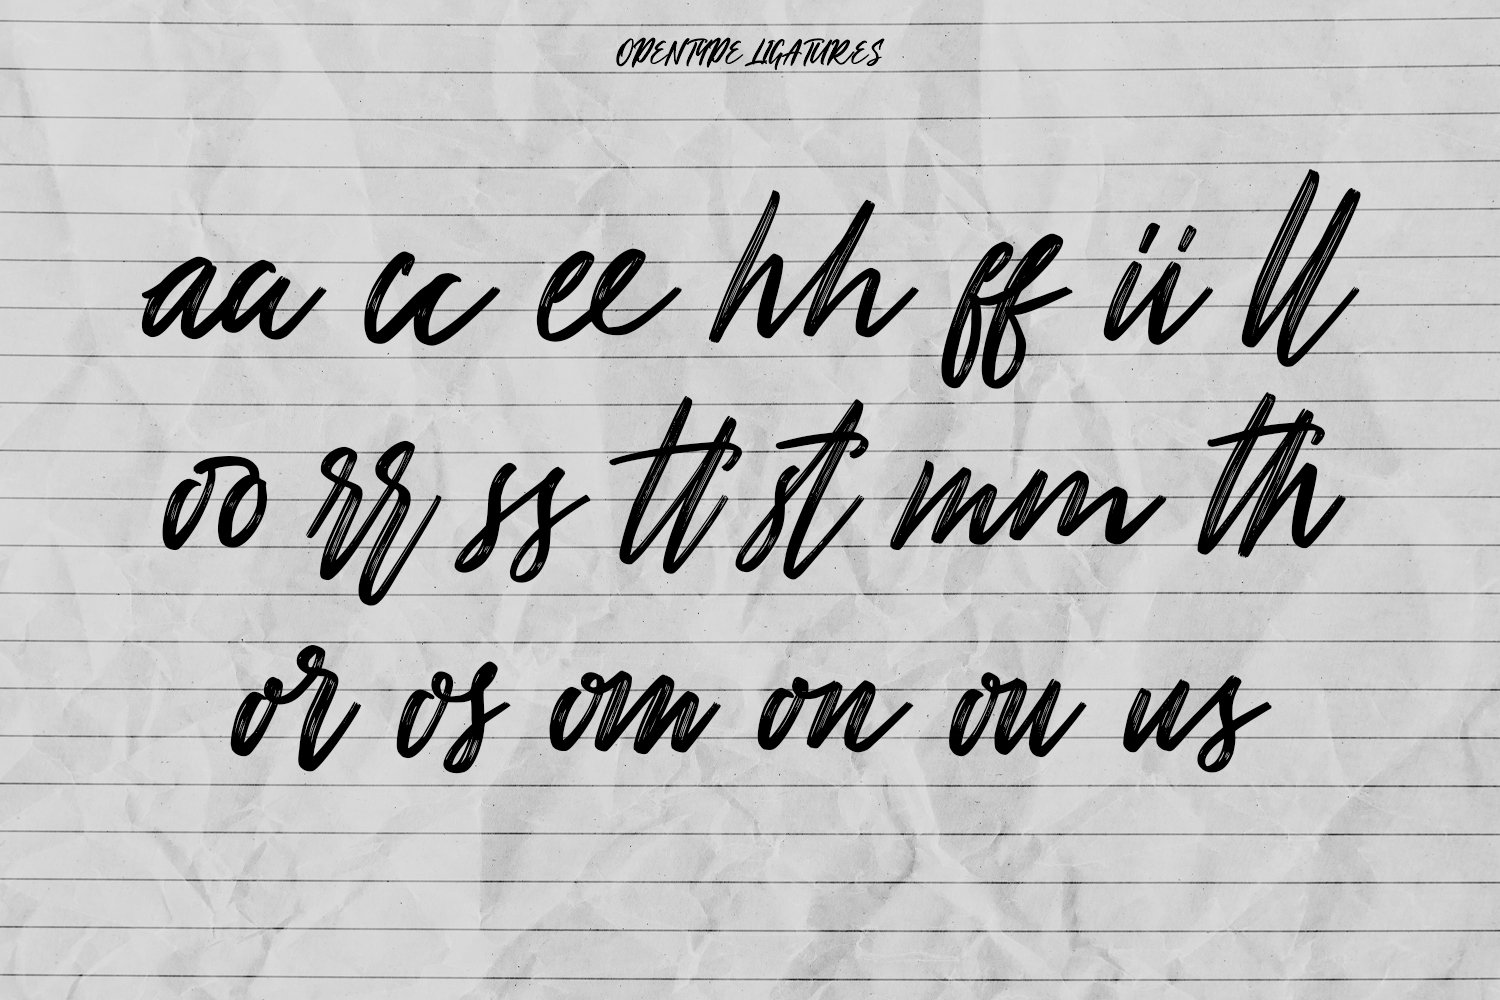 OPENTYPE LIGATURES
aa cc ee hh ff ii ll
oo rr ss tt st mm th
or os om on ou us